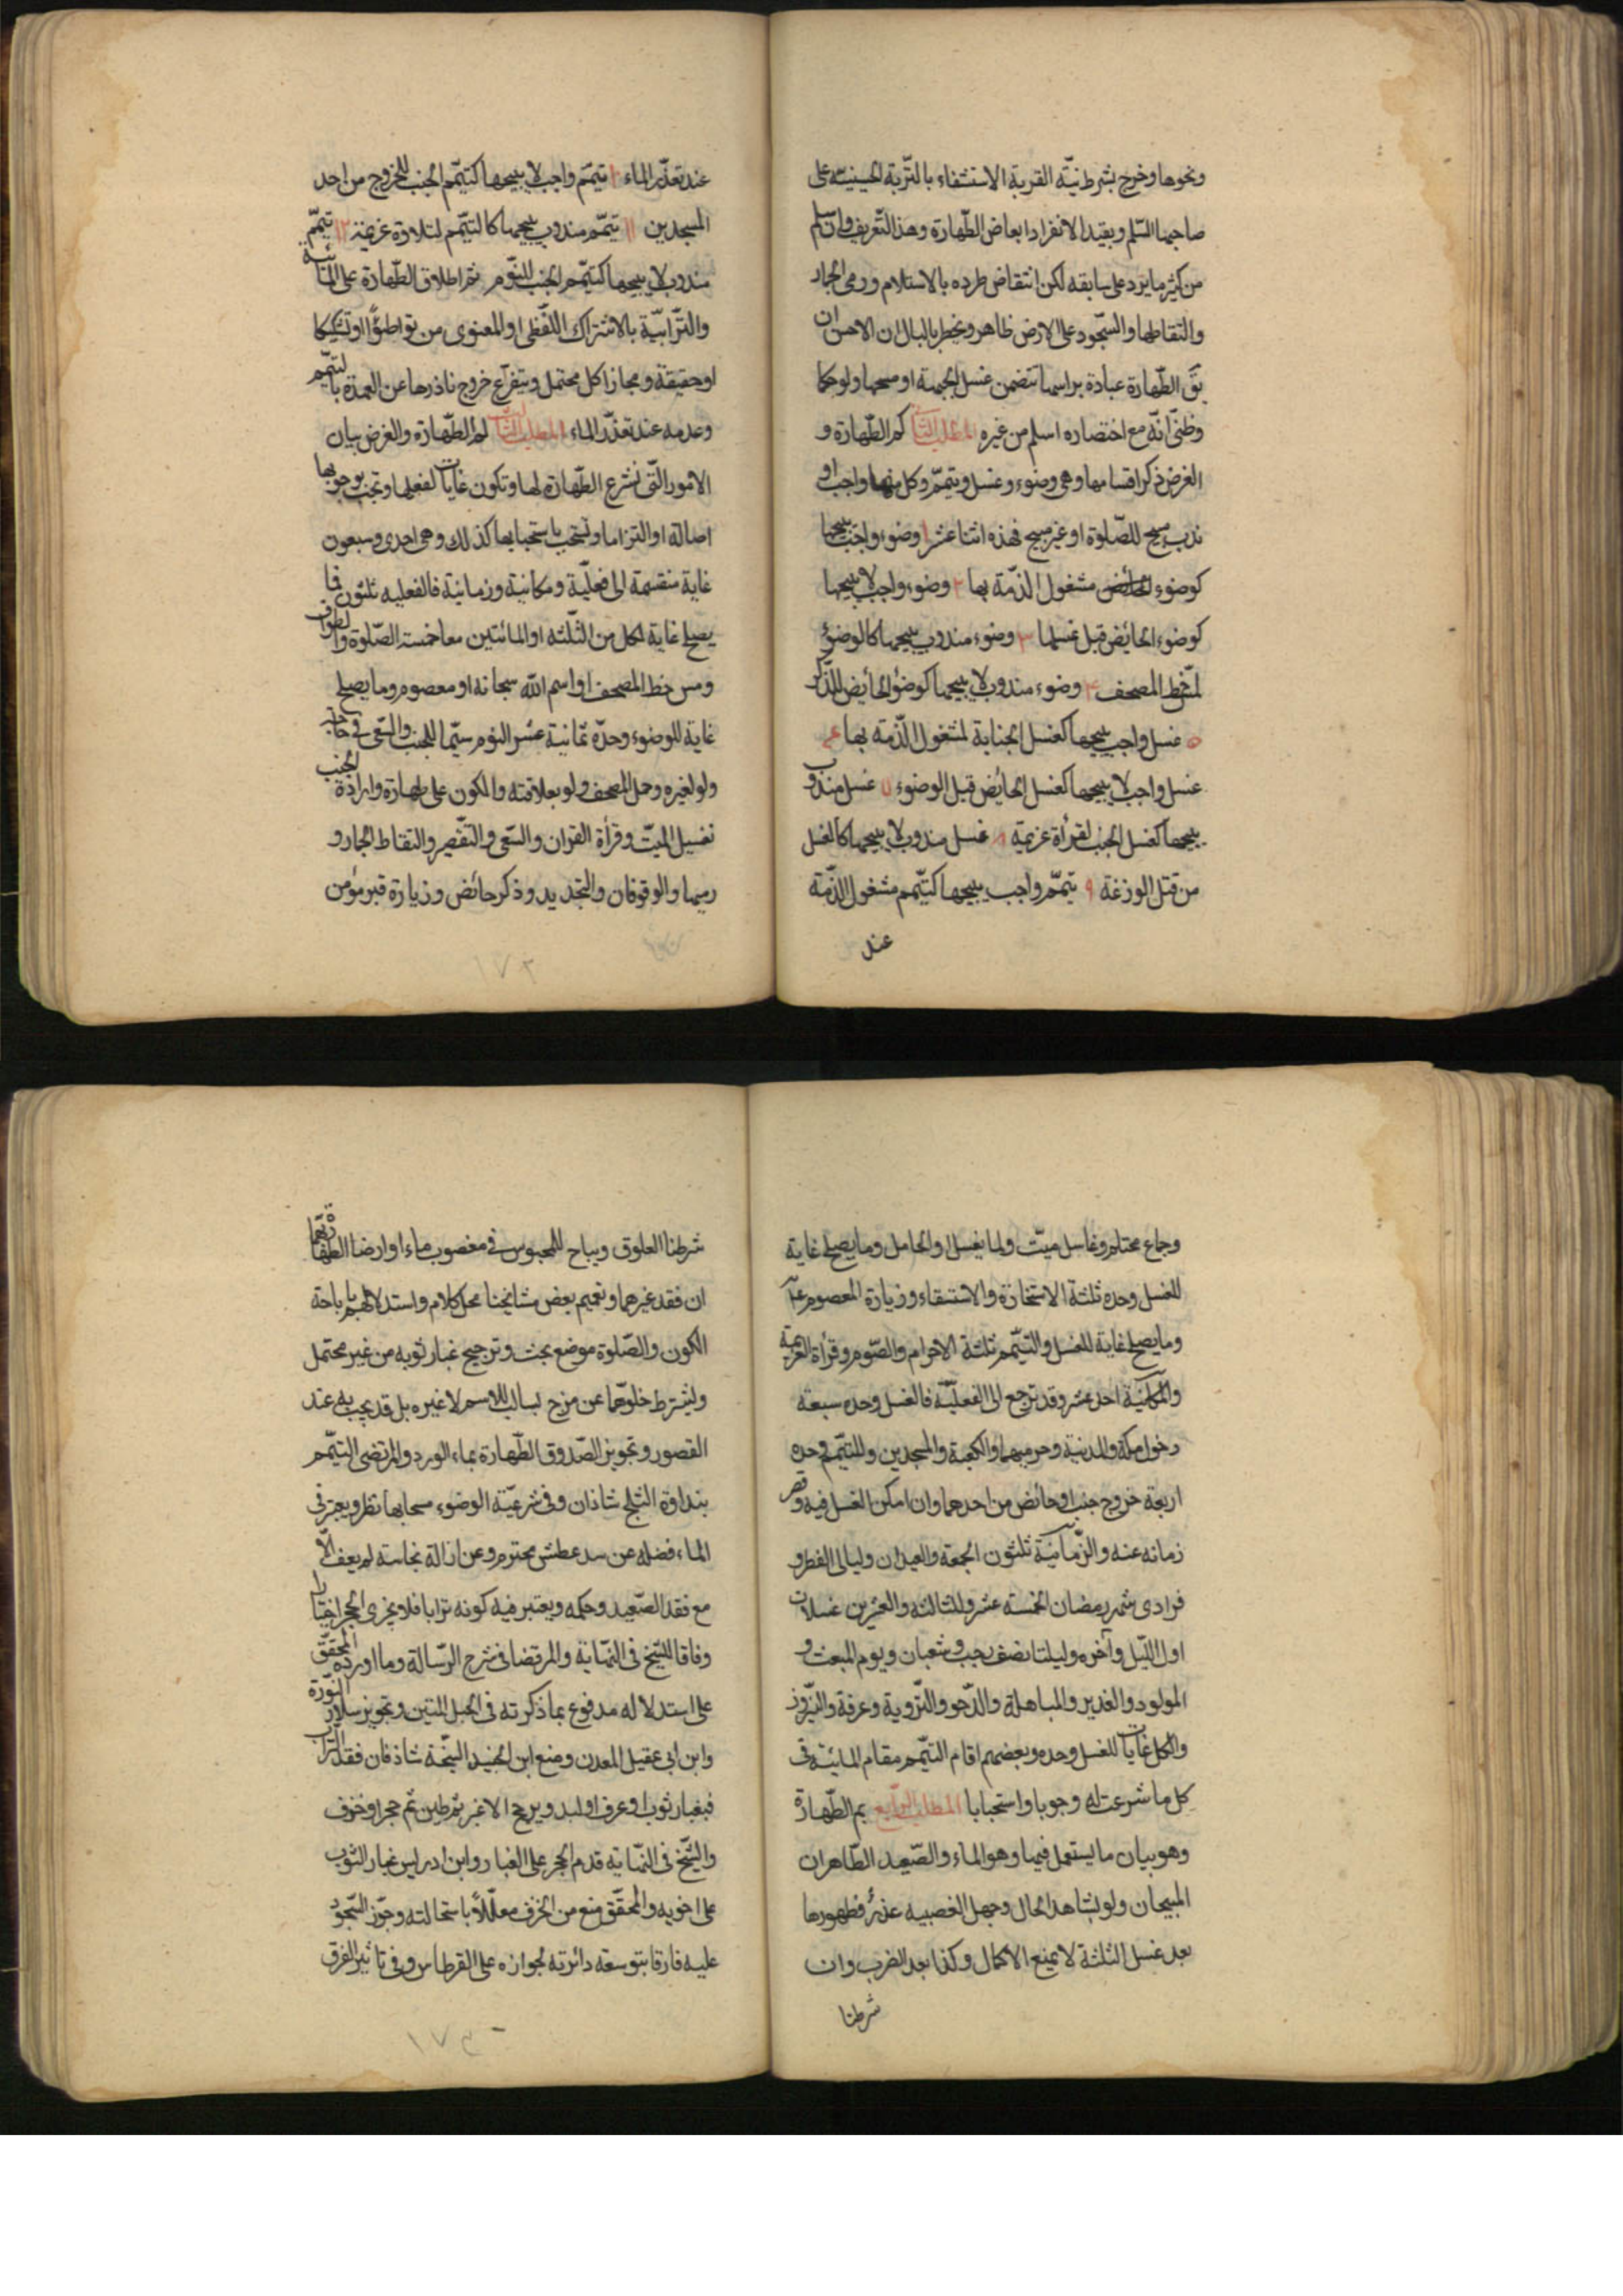 ونحوها وخرج بشرط نيّة القربة الاستشفاء بالتّربة الحسينيّة على
صاحبها السّلم وبقيد الانفراد ابعاض الطّهارة وهذا التّعريف وان سلم
من كثير مايرد على سابقه لكن انتقاض طرده بالاستلام ورمى الجمار
والتقاطها والسّجود على الارض ظاهر ويخطر بالبال ان الاحسن ان
يقَ الطّهارة عبادة براسها تتضمن غسل الجبهة او مسحها ولو حكما
وظنّى انّه مع اختصاره اسلم من غيره المطلب الثانى كم الطّهارة و
الغرض ذكر اقسامها وهى وضوء وغسل وتيمّم وكل منها واجب او
ندب مبيح للصّلوة او غير مبيح فهذه اثنا عشر ١ وضوء واجب يبيحها
كوضوء مشغول الذّمة بها ٢ وضوء واجب لا يبيحها
كوضوء الحائض قبل غسلها ٣ وضوء مندوب يبيحها كالوضوء
لمسّ خط المصحف ٤ وضوء مندوب لا يبيحها كوضوء الحائض للذّكر
٥ غسل واجب يبيحها كغسل الجنابة لمشغول الذّمة بها ٦
غسل واجب لا يبيحها كغسل الحائض قبل الوضوء ٧ غسل مندوب
يبيحها كغسل الجنب لقرأة عزيمة ٨ غسل مندوب لا يبيحها كالغسل
من قتل الوزغة ٩ تيمّم واجب يبيحها كتيّمم مشغول الذّمة
عند
عند تعذّر الماء ١٠ تيمّم واجب لا يبيحها كتيمّم الجنب للخروج من احد
المسجدين ١١ تيمّم مندوب يبيحها كالتيمّم لتلاوة عزيمة ١٢ تيمّم
مندوب لا يبيحها كتيمّم الجنب للنّوم ثم اطلاق الطّهارة على المائية
والتّرابيّة بالاشتراك اللّفظى او المعنوى من تواطؤًا او تشكيكا
او حقيقة ومجازا كل محتمل ويتفرّع خروج ناذرها عن العهدة بالتيمّم
وعدمه عند تعذّر الماء المطلب الثالث لم الطّهارة والغرض بيان
الامور الّتى تشرع الطّهارة لها وتكون غايات لفعلها وتجب بوجوبها
اصالة او التزاما وتستحب باستحبابها كذلك وهى احدى وسبعون
غاية منقسمة الى فعليّة ومكانية وزمانية فالفعلية ثلثون فما
يصلح غاية لكل من الثّلثه او المائيتين معا خمسة الصّلوة والطواف
ومس خط المصحف او اسم الله سبحانه او معصوم وما يصلح
غاية للوضوء وحدّه ثمانية عشر النوم سيّما للجنب والسّعى فى حاجة
ولو لغيره وحمل المصحف ولو بعلاقته والكون على طهارة وارادة الجنب
تغسيل الميّت وقرأة القران والسّعى والتّقصير والتقاط الجمار و
رميها والوقوفان والتجديد وذكر حائض وزيارة قبر مؤمن
١٧٢
وجماع محتلم وغاسل ميّت ولما يغسل او الحامل وما يصلح غاية
للغسل وحده ثلثة الاستخارة والاستسقاء وزيارة المعصوم ع
وما يصلح غاية للغسل والتيمّم ثلثة الاحرام والصّوم وقرأة العزيمة
والمكانيّة احد عشر وقد ترجع الى الفعليّة فالغسل وحده سبعة
دخول مكّة والمدينة وحرميهما والكعبة والمسجدين وللتيمّم وحده
اربعة خروج جنب او حائض من احدهما وان امكن الغسل فيه وقصر
زمانه عنه والزّمانيّة ثلثون الجمعة والعيدان وليالى الفطر و
فرادى شهر رمضان الخمسة عشر وللثالثة والعشرين غسلان
اول اللّيل وآخره وليلتا نصف رجب وشعبان ويوم المبعث و
المولود والغدير والمباهلة والدّحو والتّروية وعرفة والنّيروز
والكل غايات للغسل وحده وبعضهم اقام التيمّم مقام المائيّة فى
كل ما شرعت له وجوبا واستحبابا المطلب الرابع بم الطّهارة
وهو بيان ما يستعمل فيها وهو الماء والصّعيد الطّاهران
المبيحان ولو بشاهد الحال وجهل الغصبيه عذر فظهورها
بعد غسل الثلثة لا يمنع الاكمال وكذا بعد الضرب وان
شرطنا
شرطنا العلوق ويباح للمحبوس فى مغصوب ماء او ارضا الطّهارة بهما
ان فقد غيرهما وتعميم بعض مشايخنا محل كلام واستدلالهم باباحة
الكون والصّلوة موضع بحث وترجيح غبار ثوبه من غير محتمل
ويشترط خلوّهما عن مزج لسالب الاسم لا غيره بل قد يجب به عند
القصور وتجويز الصّدوق الطّهارة بماء الورد والمرتضى التيّمم
بنداوة الثلج شاذان وفى شرعيّة الوضوء مسحا بها نظر ويجزى فى
الماء فضله عن سد عطش محترم وعن ازالة نجاسة لم يعف الّا
مع فقد الصّعيد وحكمه ويعتبر فيه كونه ترابا فلا يجزى الحجر اختيارا
وفاقا للشّيخ فى النّهاية والمرتضى فى شرح الرّسالة وما اورده المحقّق
على استدلاله مدفوع بما ذكرته فى الحبل المتين وتجويز سلار النّورة
وابن ابى عقيل المعدن ومنع ابن الجنيد السّبخة شاذ فان فقد التراب
فبغبار ثوب او عرف او لبد ويرجح الاغبر ثم طين ثم حجر او خزف
والشّيخ فى النّهاية قدم الحجر على الغبار وابن ادريس غبار الثوب
على اخويه والمحقّق منع من الخزف معلّلاً باستحالته وجوّز السّجود
عليه فارقا بتوسعة دائرته لجوازه على القرطاس وفى تاثير الفرق
١٧٣